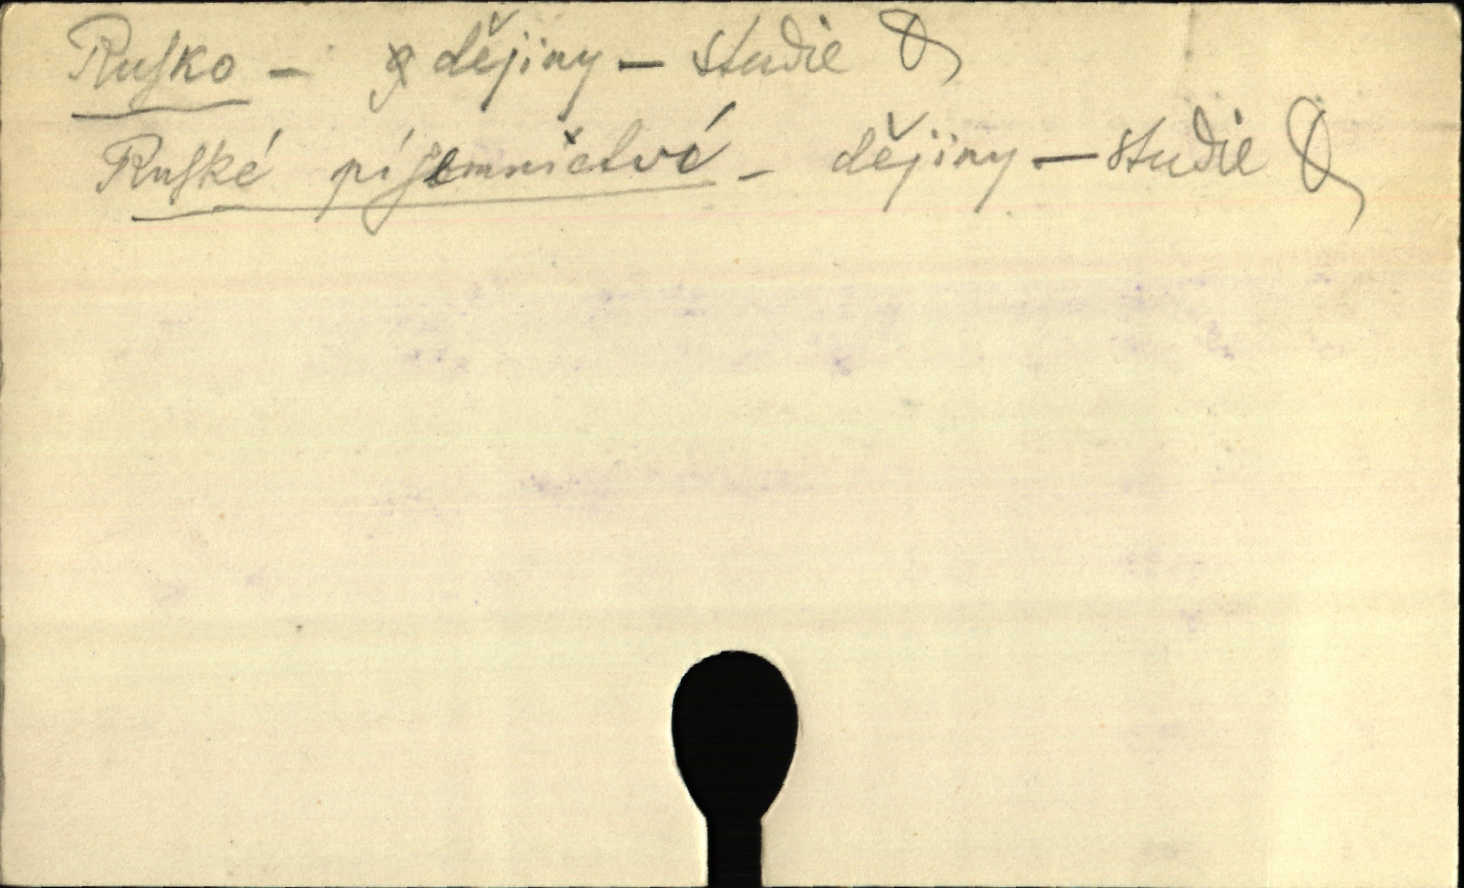 Rusko - dějiny - studie
Ruské písemnictví - dějiny - studie